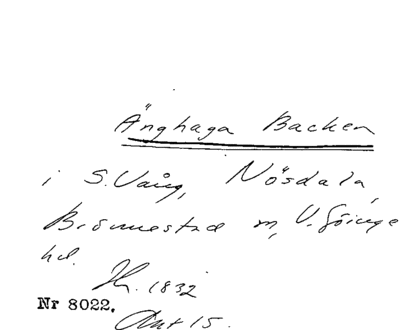 Änghaga Backen
i S. Vång, Nösdala,
Brönnestad m, V. Göinge
hd.
Th. 1832
Nr 8022.
Ant 15.